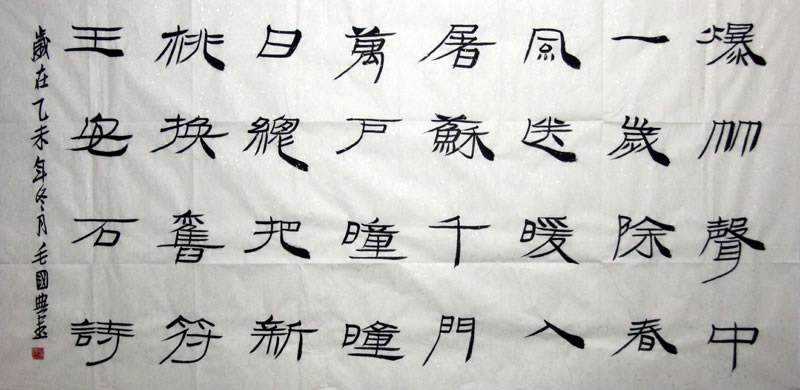 爆竹聲中
一歲除春
風送暖入
屠蘇千門
萬戶曈曈
日總把新
桃換舊符
王安石詩
歲在乙未年冬月毛國典書